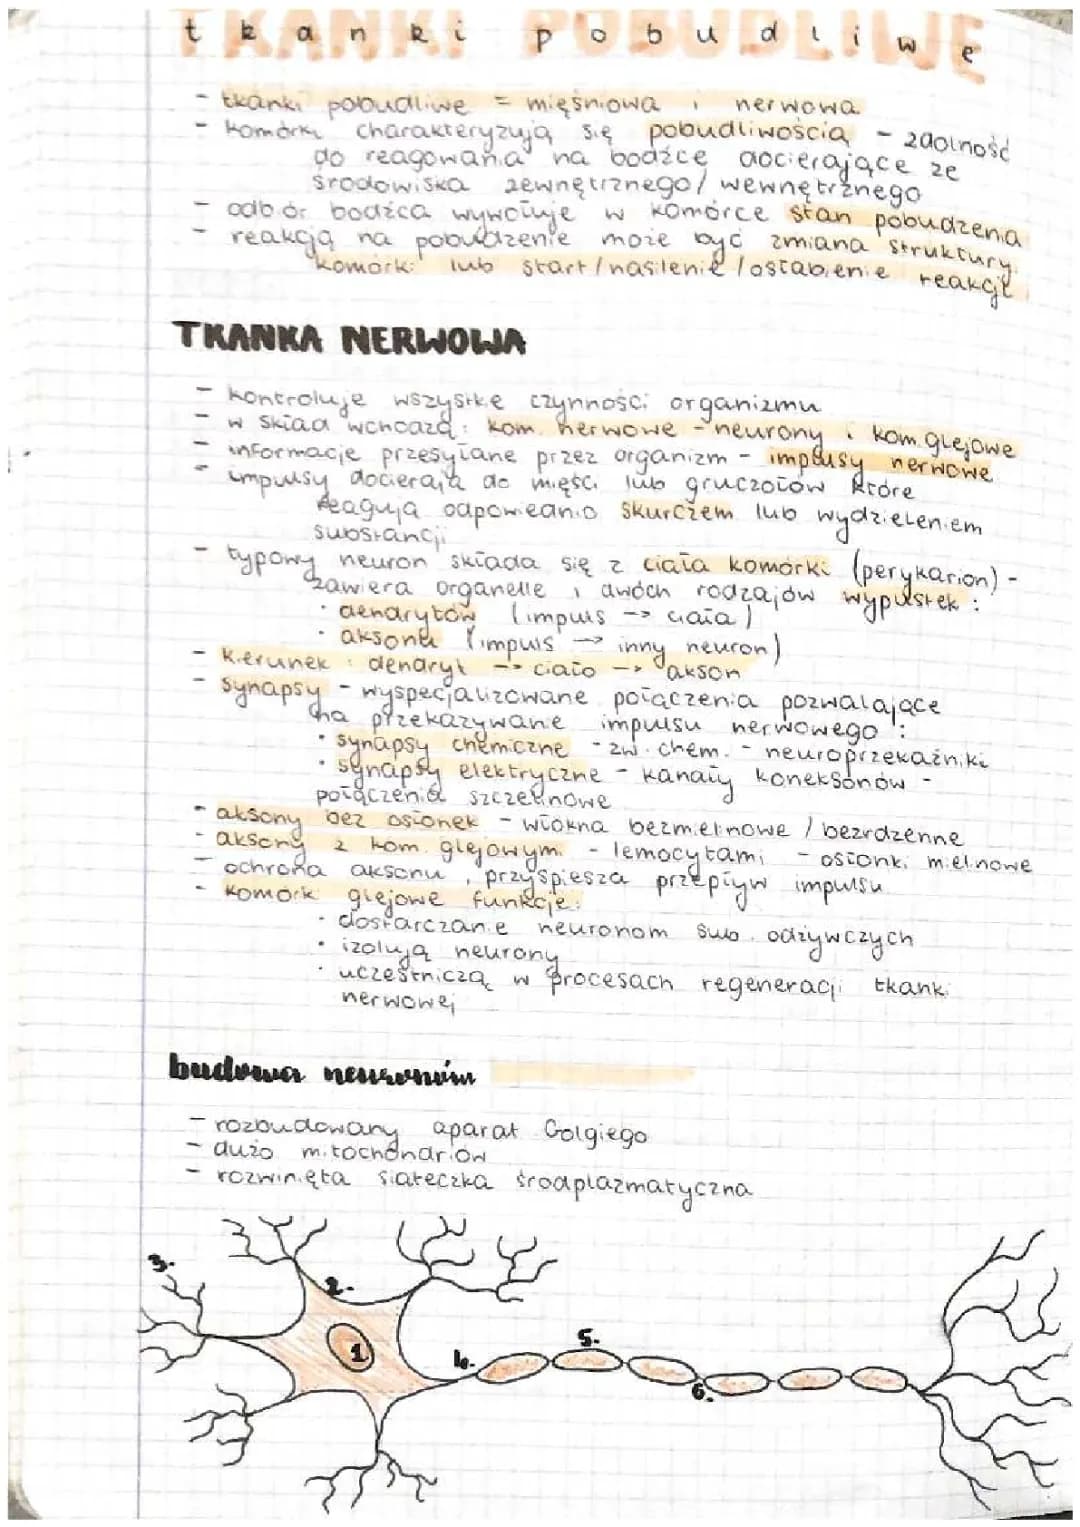 TKANKI POBUDLIWE
tkanki pobudliwe
- tkanki pobudliwe = mięśniowa i nerwowa
- komórki charakteryzują się pobudliwością - zdolność
do reagowania na bodźce docierające ze
środowiska zewnętrznego/wewnętrznego
- odbiór bodźca wywołuje w komórce stan pobudzenia
- reakcją na pobudzenie może być zmiana struktury
komórki lub start/nasilenie/osłabienie reakcji
TKANKA NERWOWA
- kontroluje wszystkie czynności organizmu
- w skład wchodzą: kom. nerwowe - neurony i kom. glejowe
- informacje przesyłane przez organizm - impulsy nerwowe
- impulsy docierają do mięśni lub gruczołów które
reagują odpowiednio skurczem lub wydzieleniem
substancji
- typowy neuron składa się z ciała komórki (perykarion) -
zawiera organelle i dwóch rodzajów wypustek:
· dendrytów (impuls -> ciała)
· aksonu (impuls -> inny neuron)
- kierunek: dendryt -> ciało -> akson
- synapsy - wyspecjalizowane połączenia pozwalające
na przekazywanie impulsu nerwowego:
· synapsy chemiczne - zw. chem. - neuroprzekaźniki
· synapsy elektryczne - kanały koneksonów -
połączenia szczelinowe
- aksony bez osłonek - włókna bezmielinowe / bezrdzenne
- aksony z kom. glejowymi - lemocytami - osłonki mielinowe
- ochrona aksonu, przyspiesza przepływ impulsu
- komórki glejowe funkcje:
· dostarczanie neuronom sub. odżywczych
· izolują neurony
· uczestniczą w procesach regeneracji tkanki
nerwowej
budowa neuronów
- rozbudowany aparat Golgiego
- dużo mitochondriów
- rozwinięta siateczka środplazmatyczna
3.
2.
1
4.
5.
6.